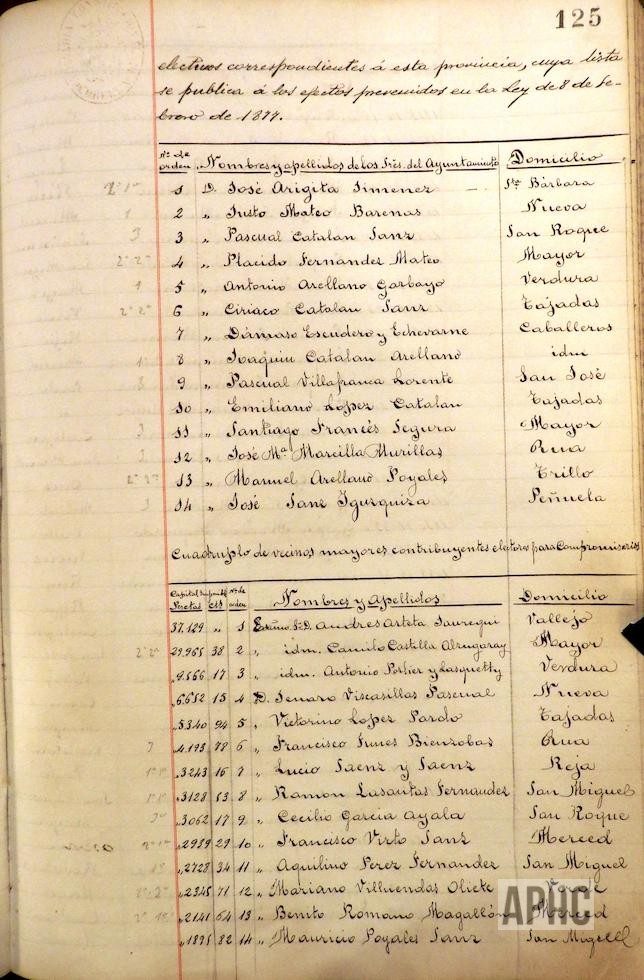 125
electivos correspondientes á esta provincia, cuya lista
se publica á los efectos prevenidos en la Ley de 8 de Fe-
brero de 1877.
Nº de orden Nombres y apellidos de los Sres. del Ayuntamiento Domicilio
1 D. José Arigita Jimenez Sta Bárbara
2 " Justo Mateo Barenas Nueva
3 " Pascual Catalan Sanz San Roque
4 " Placido Fernandez Mateo Mayor
5 " Antonio Arellano Garbayo Verdura
6 " Ciriaco Catalan Sanz Tajadas
7 " Dámaso Escudero y Echevarne Caballeros
8 " Joaquin Catalan Arellano idm
9 " Pascual Villafranca Lorente San José
10 " Emiliano López Catalan Tajadas
11 " Santiago Francés Segura Mayor
12 " José Mª Marcilla Murillas Rua
13 " Manuel Arellano Poyales Trillo
14 " José Sanz Igurquiza Peñuela
Cuadruplo de vecinos mayores contribuyentes electores para Compromisarios
Pesetas Cts Nº de orden Nombres y apellidos Domicilio
37.129 " 1 Sr. D. Andres Arteta Jauregui Vallejo
29.965 38 2 " idm. Camilo Castilla Mayor
9.566 17 3 " idm. Antonio Porlier y Lasquetty Verdura
6.652 15 4 D. Jenaro Viscasillas Pascual Nueva
5.340 94 5 " Victorino Lopez Pardo Tajadas
4.193 78 6 " Francisco Funes Bienzobas Rua
3243 16 7 " Lucio Saenz y Saenz Reja
3128 53 8 " Ramon Lasantas Fernandez San Miguel
3062 17 9 " Cecilio Garcia Ayala San Roque
2939 29 10 " Francisco Virto Sanz Merced
2728 34 11 " Aquilino Perez Fernandez San Miguel
2345 71 12 " Mariano Villuendas Oliete Verde
2141 64 13 " Benito Romano Magallón Merced
1895 82 14 " Mauricio Poyales Sanz San Miguel
APHC